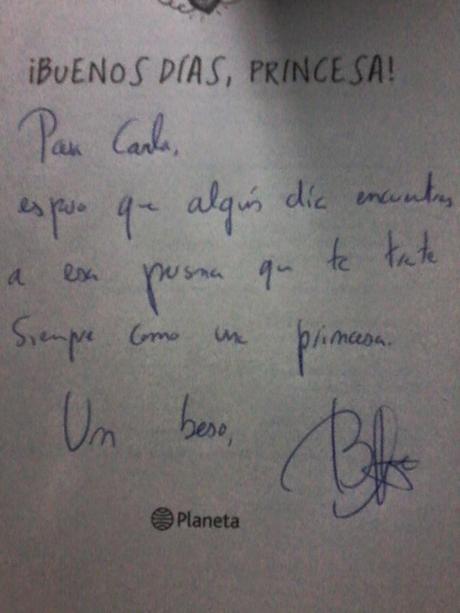 ¡BUENOS DÍAS, PRINCESA!
Para Carla,
espero que algún día encuentres
a esa persona que te trate
siempre como una princesa.
Un beso,
Planeta